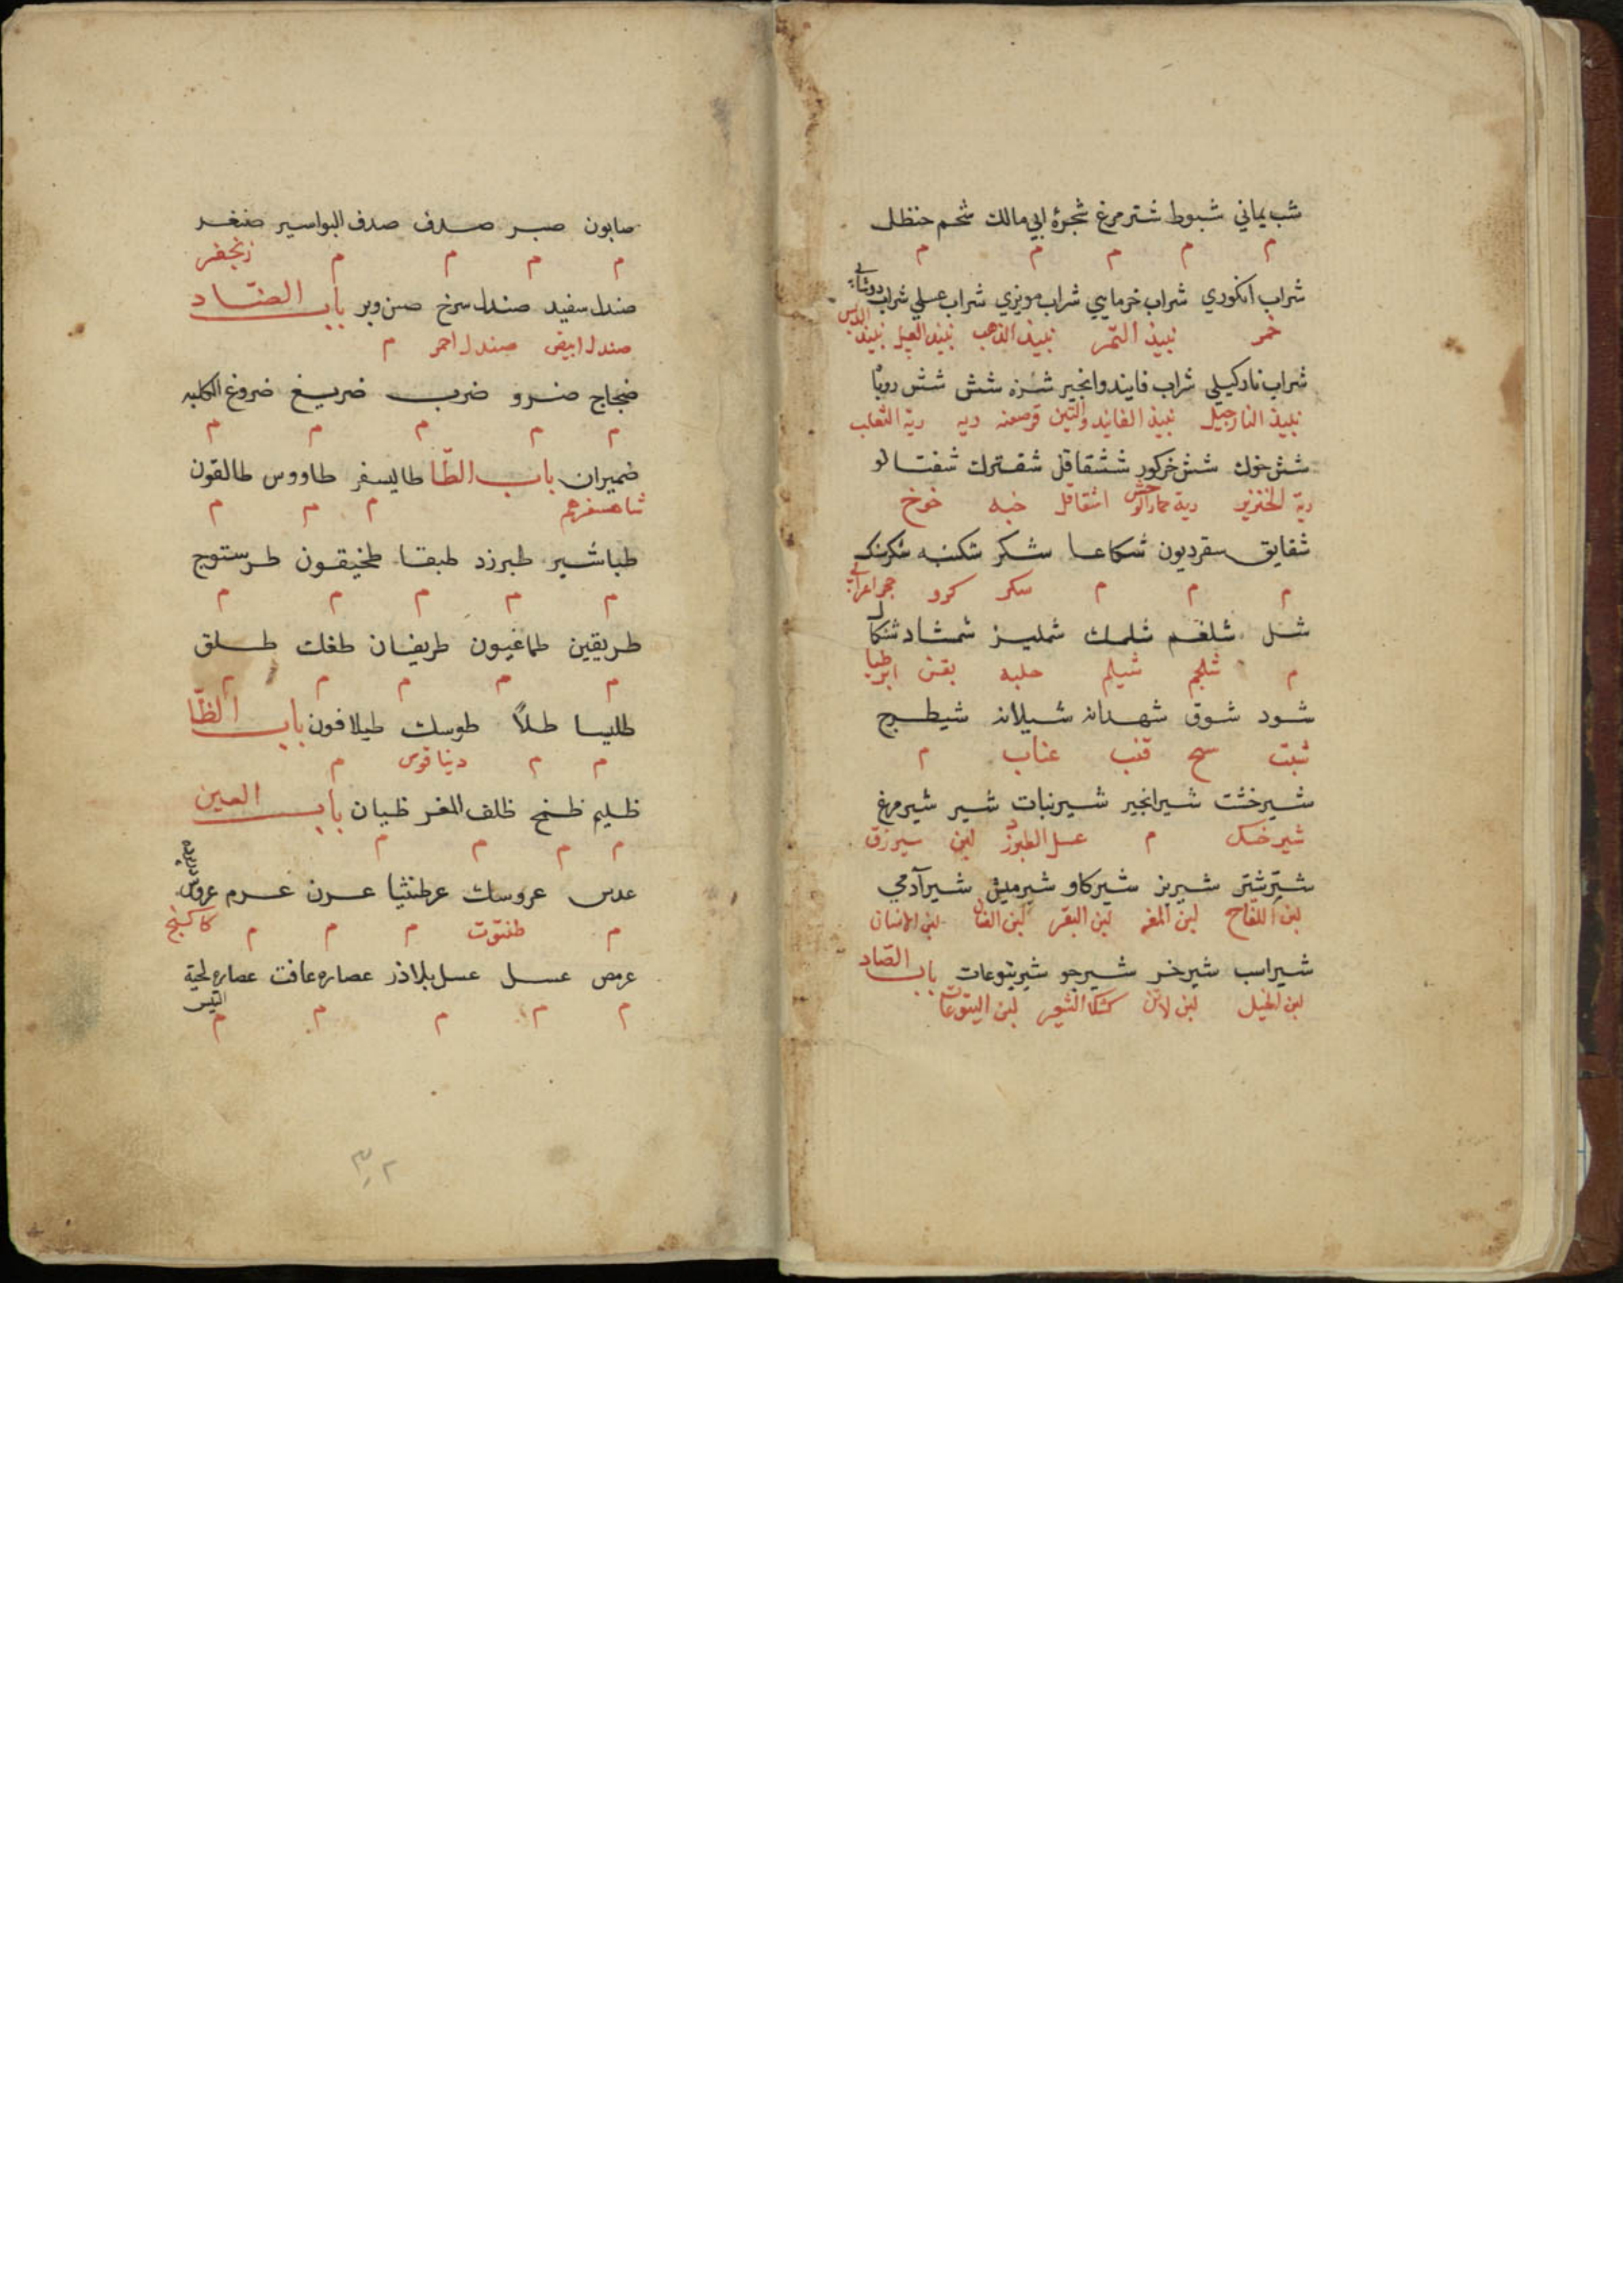 شب يماني شبوط شترمرغ شجرة ابي مالك شحم حنظل
م م م م م
شراب انكوري شراب خرمايي شراب مويزي شراب عسلي شراب دوشابي
خمر نبيذ التمر نبيذ العسل نبيذ الدبس
شراب ناركيلي شراب فانيد وانجير شش شش روباه
نبيذ النارجيل نبيذ الفانيد والتين قرصعنه ريه رية الثعلب
شش خوك شش خركور ششقاقل شقترك شفتالو
رية الخنزير رية حمار الوحش اشقاقل خبه خوخ
شقايق سقرديون شكاعا شكر شكنبه شكرسنك
م م م سكر كرو حجر اعرابي
شل شلغم شلمك شمليز شمشاد شنكار
م شلجم شيلم حلبه بقس
شود شوق شهدانه شيلانه شيطرج
شبت قنب عناب م
شيرخشت شيرانجير شيرنبات شير شيرمرغ
شيرخشك م عسل الطبرزد لبن سيرزق
شيرشتر شيربز شيركاو شيرميش شيرآدمي
لبن اللقاح لبن المعز لبن البقر لبن الضان لبن الانسان
شيراسب شيرخر شيرجو شيريتوعات باب الصاد
لبن الخيل لبن لاتن كشك الشعير لبن اليتوعات
صابون صبر صدف صدف البواسير
م م م م زنجفر
صندل سفيد صندل سرخ صنوبر باب الضاد
صندل ابيض صندل احمر م
ضجاج ضرو ضرب ضريع ضروع الكلبه
م م م م م
ضميران باب الطا طاليسفر طاووس طالقون
شاهسفرهم م م م
طباشير طبرزد طبقا طخيقون طرستوج
م م م م م
طريقين طماغيون طريفان طغك طلق
م م م م م
طليسا طلا طوسك طيلافون باب الظا
م م دينا قوس م
ظليم ظمخ ظلف المعز ظيان باب العين
م م م م
عدس عروسك عرطنثيا عرن عرم عروس در پرده
م م م م كاكنج
عرمض عسل عسل بلاذر عصاره غافت عصاره لحية التيس
م م م م م